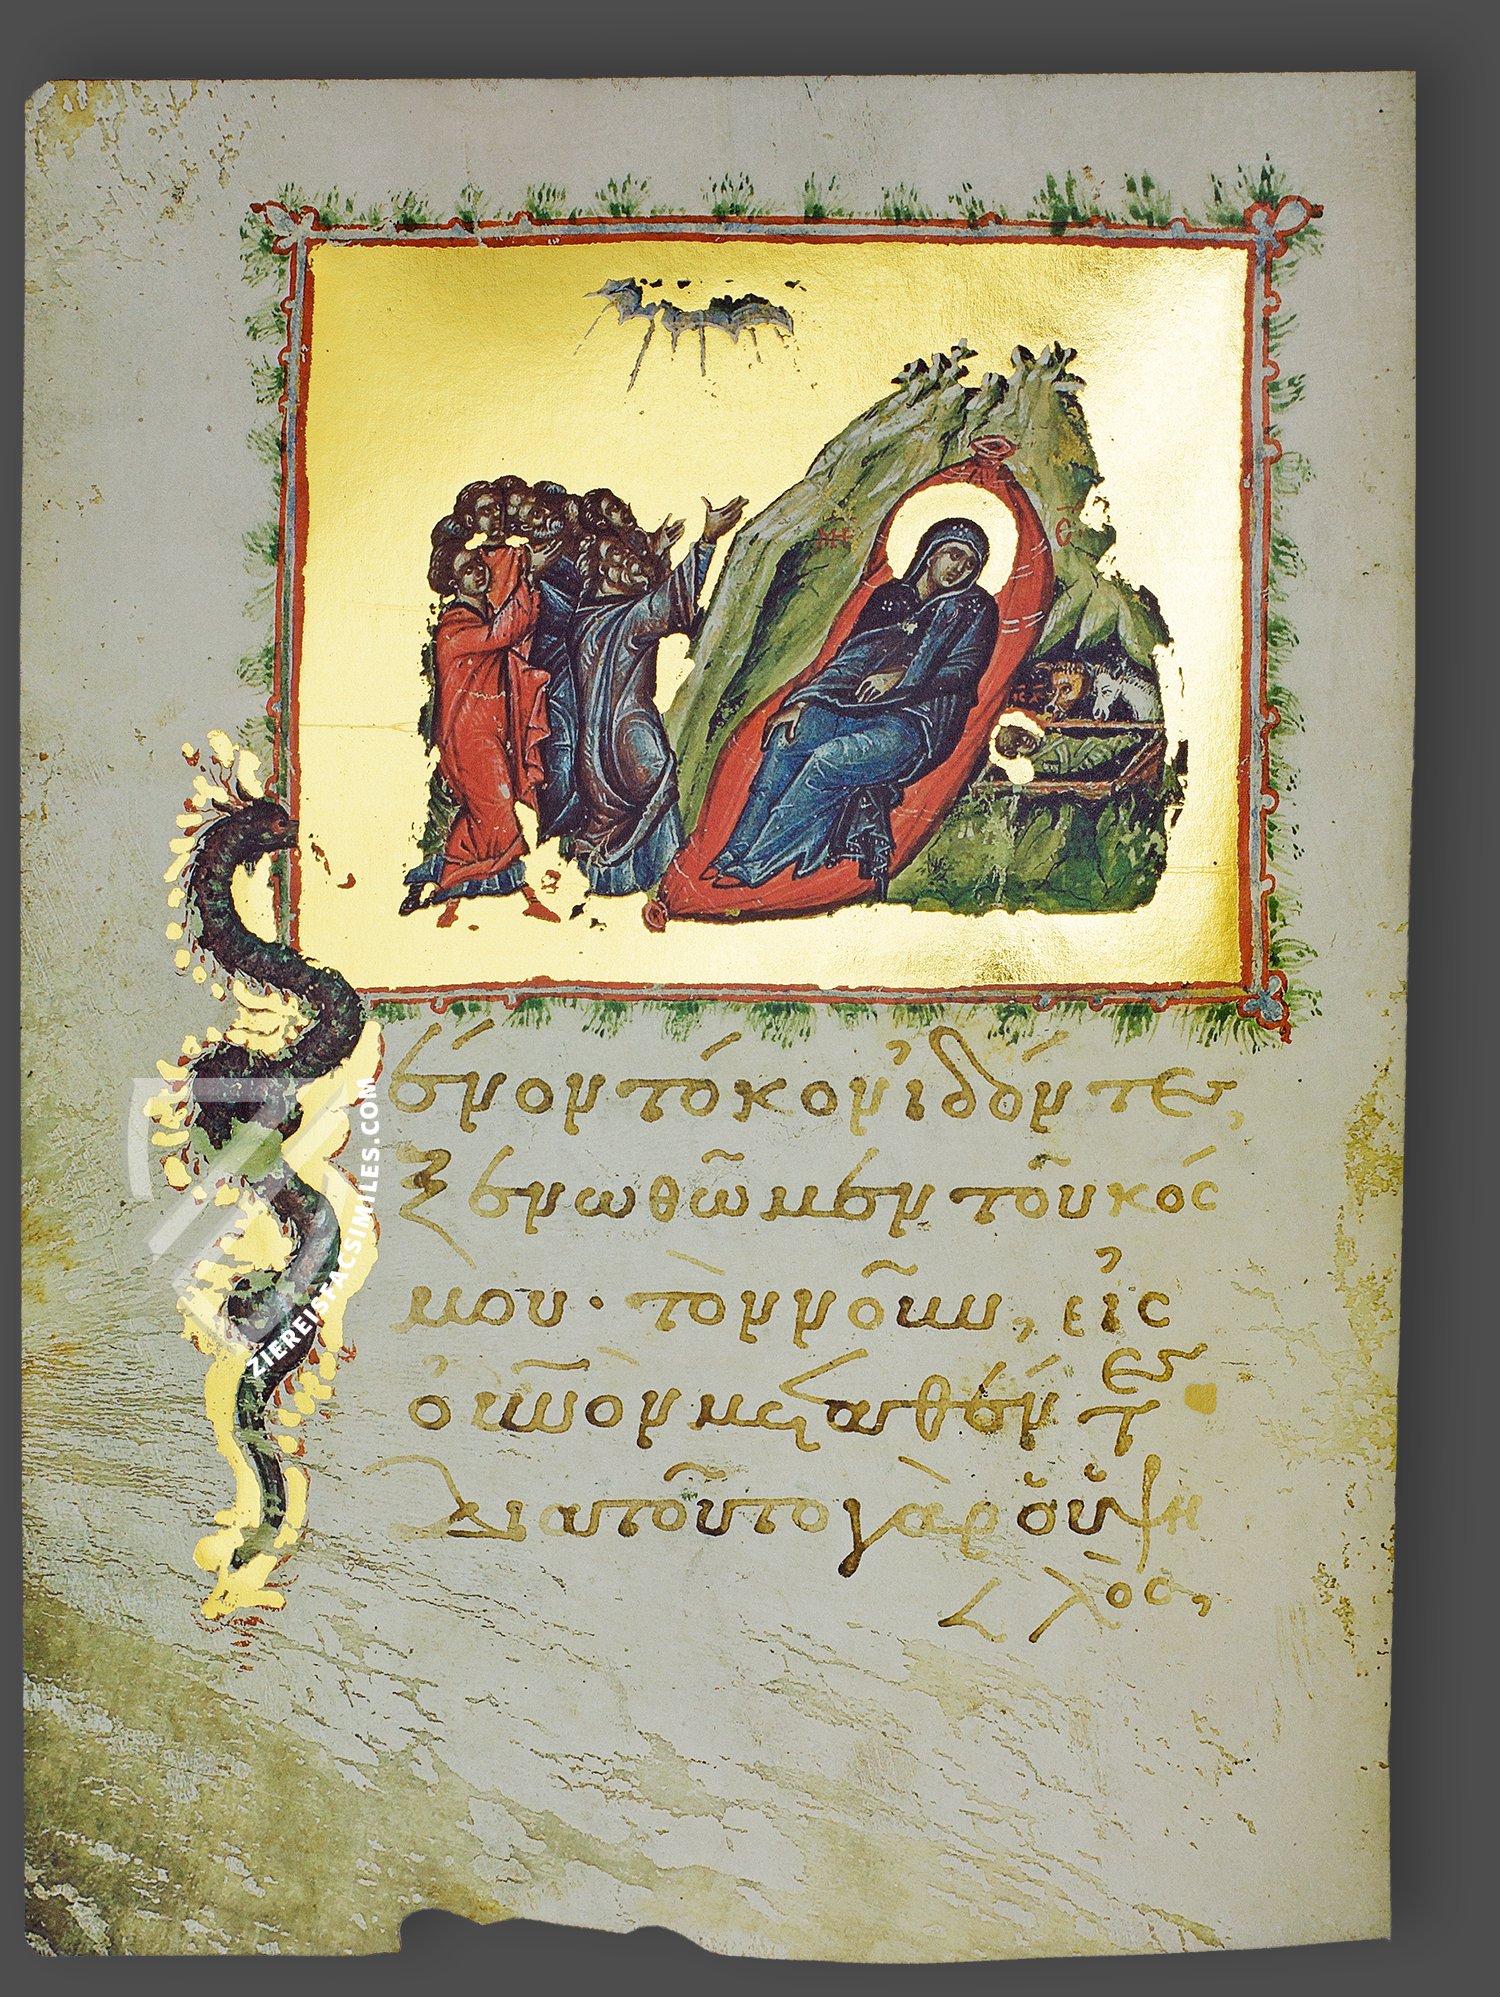 ΜΡ
Ξένον τόκον ἰδόντες,
ξενωθῶμεν τοῦ κόσ
μου· τὸν νοῦν, εἰς
οὐνον μεταθέντες
διατοῦτο γὰρ ὁ ὑψη
λὸς,
ZIEREISFACSIMILES.COM